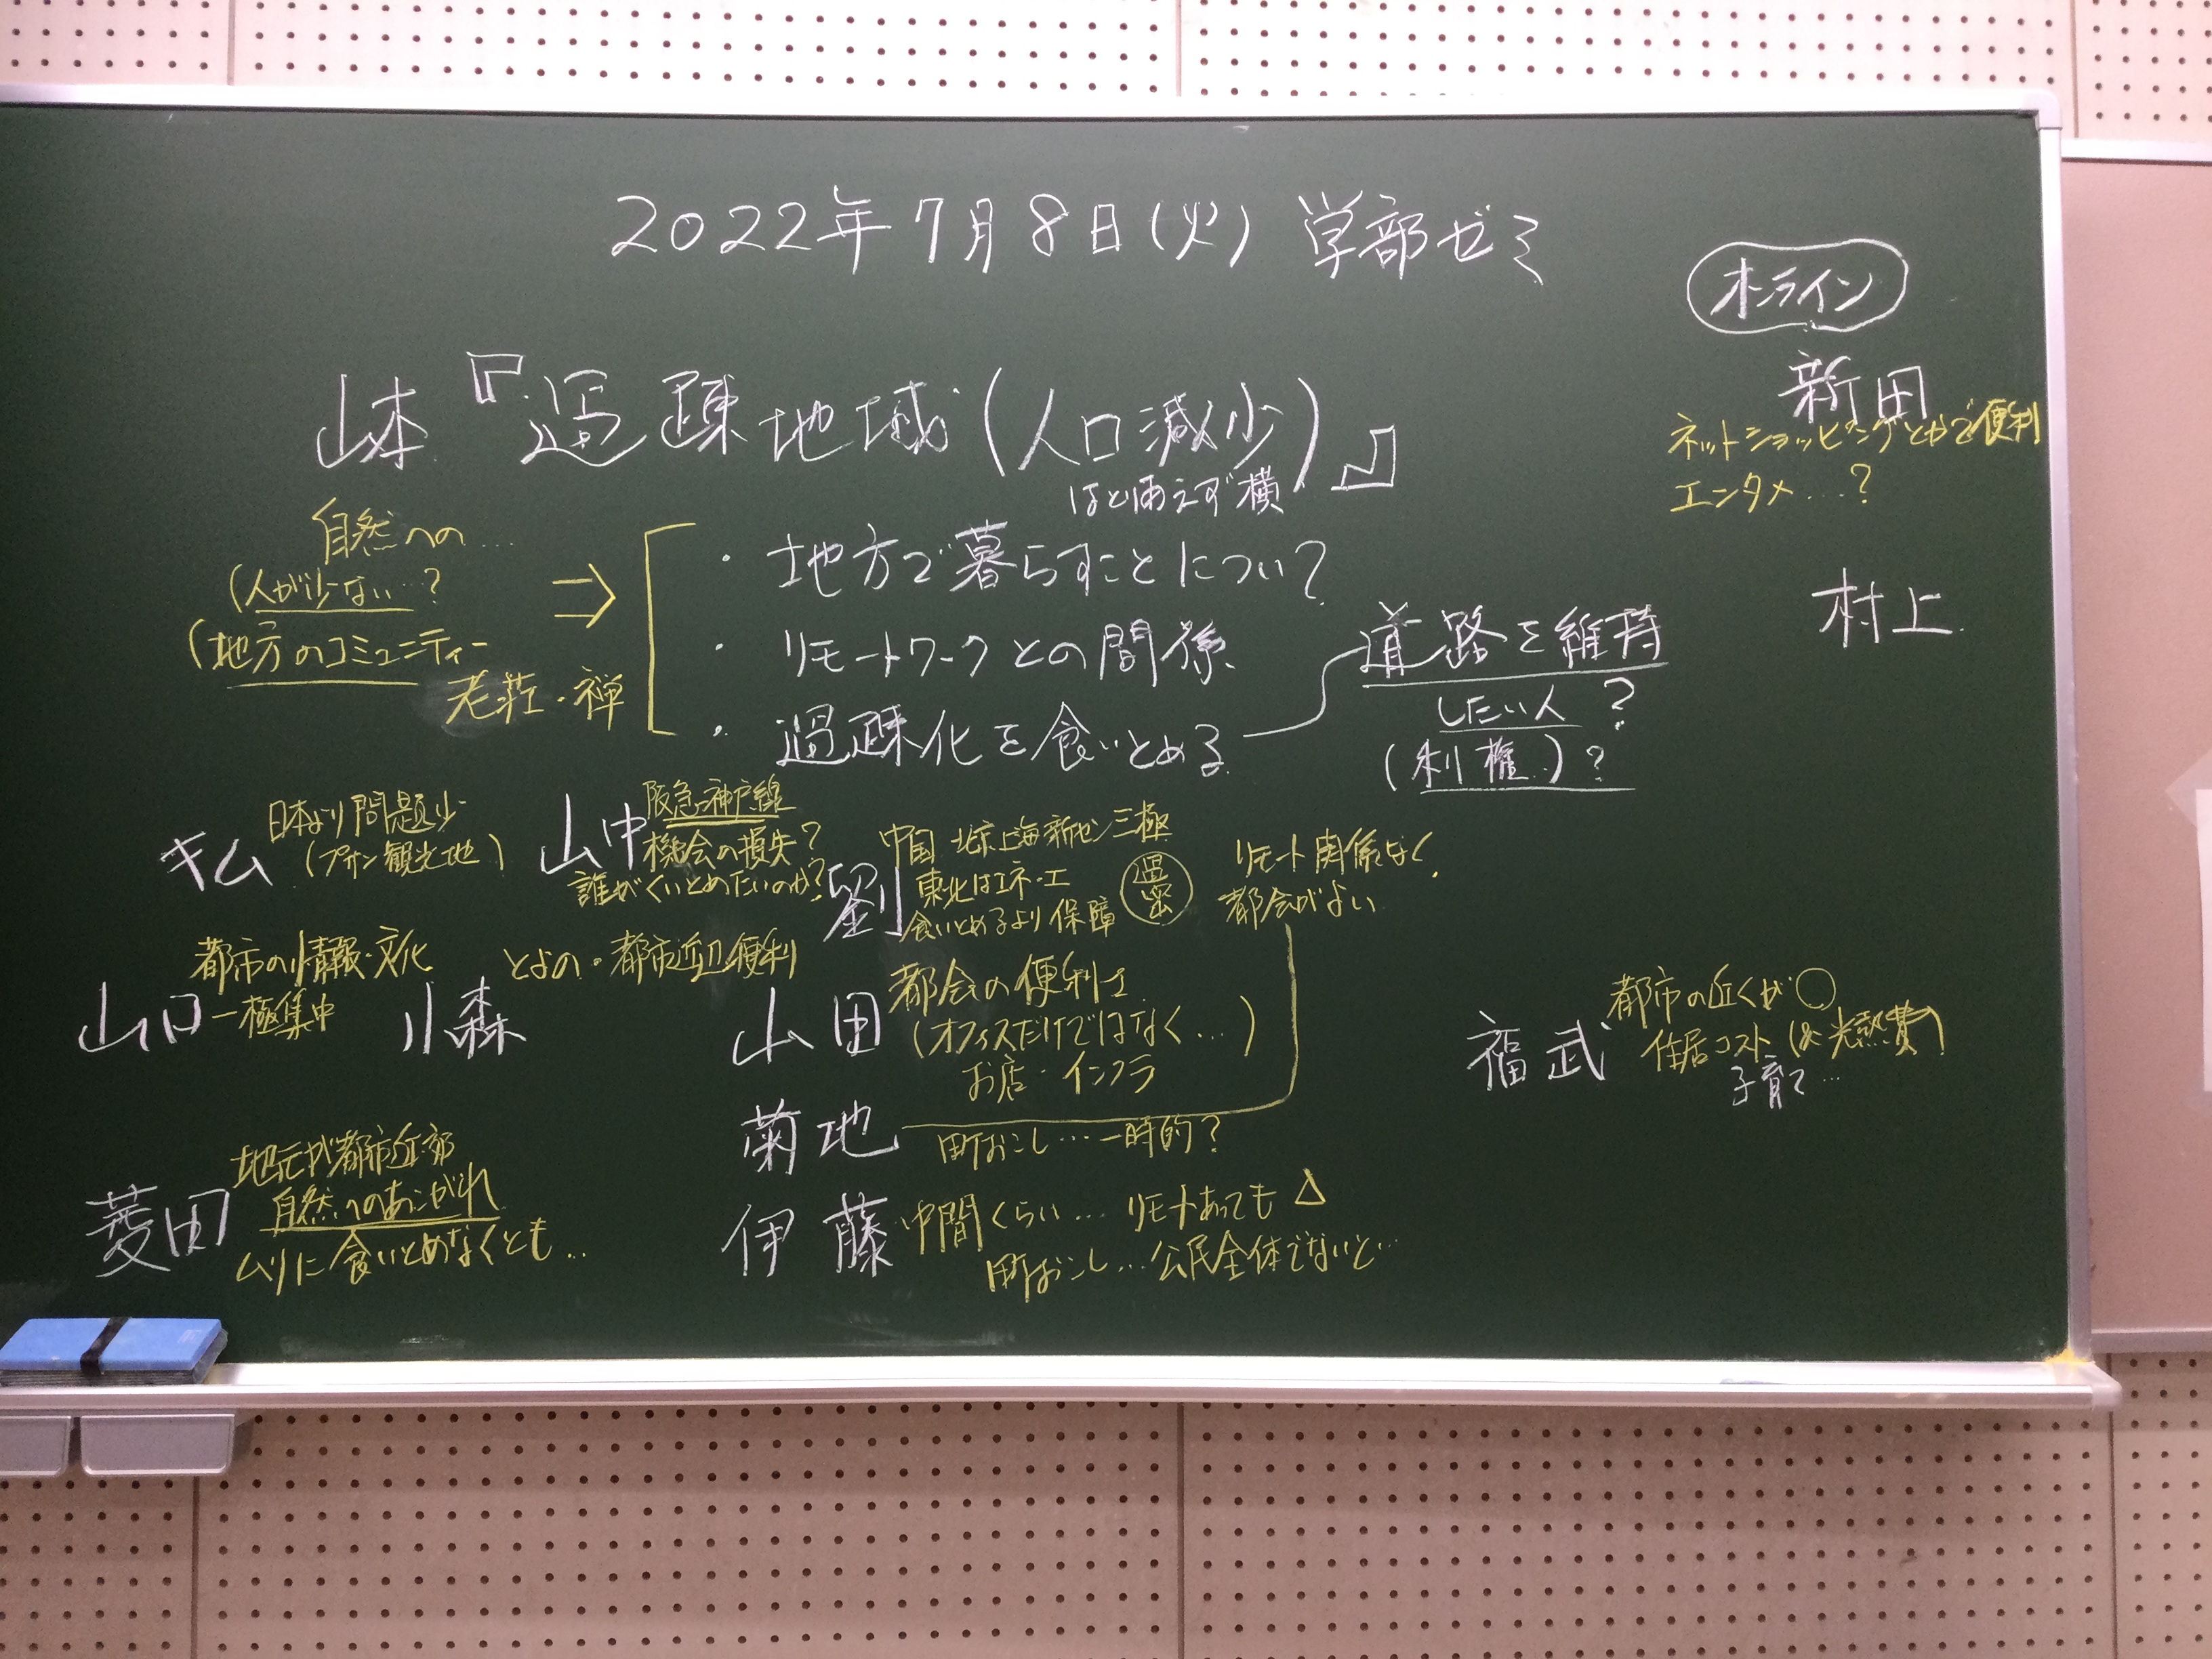 2022年7月8日(火) 学部ゼミ
オンライン
新田
ネットショッピングとかで便利
エンタメ…?
村上
山本『過疎地域(人口減少)』
はと思えず横
・地方で暮らすことについて?
・リモートワークとの関係
・過疎化を食いとめる
道路を維持
したい人?
(利権)?
自然への…
(人が少ない…?
(地方のコミュニティー
老荘・禅
⇒
キム
日本より問題少
(プサン観光地)
山中
阪急・神戸線
機会の損失?
誰がくいとめたいのか?
劉
中国 北京上海新セン三極
東北はエネ・エ
食いとめるより保障
過密
リモート関係なく
都会がよい
山口
都市の情報・文化
一極集中
小森
とよの・都市近辺便利
山田
都会の便利さ
(オフィスだけではなく…)
お店・インフラ
福武
都市の近くが○
住居コスト(& 光熱費)
子育て…
菊地
町おこし…一時的?
菱田
地元が都市近郊
自然へのあこがれ
ムリに食いとめなくとも…
伊藤
中間くらい… リモートあっても△
町おこし…公民全体でないと…